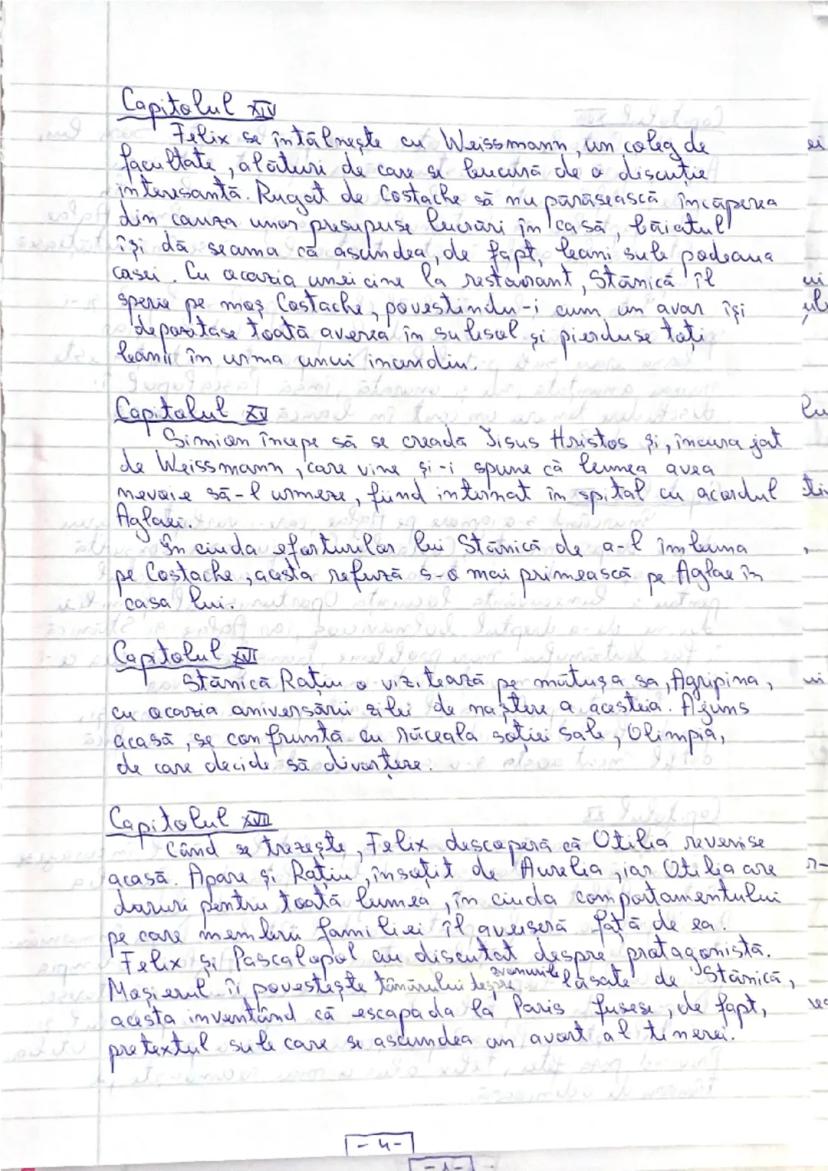 Capitolul XIV
Felix se întâlnește cu Weissmann, un coleg de
facultate, alături de care se bucură de o discuție
interesantă. Rugat de Costache să nu părăsească încăperea
din cauza unor presupuse lucrări în casă, băiatul
își dă seama că ascundea, de fapt, bani sub podeaua
casei. Cu ocazia unei cine la restaurant, Stănică îl
sperie pe moș Costache, povestindu-i cum un avar își
depozitase toată averea în subsol și pierduse toți
banii în urma unui incendiu.
Capitolul XV
Simion începe să se creadă Iisus Hristos și, încurajat
de Weissmann, care vine și-i spune că lumea avea
nevoie să-l urmeze, fiind internat în spital cu acordul
Aglaei.
În ciuda eforturilor lui Stănică de a-l îmbuna
pe Costache, acesta refuză s-o mai primească pe Aglae în
casa lui.
Capitolul XVI
Stănică Rațiu o vizitează pe mătușa sa, Agripina,
cu ocazia aniversării zilei de naștere a acesteia. Ajuns
acasă, se confruntă cu răceala soției sale, Olimpia,
de care decide să divorțeze.
Capitolul XVII
Când se trezește, Felix descoperă că Otilia revenise
acasă. Apare și Rațiu, însoțit de Aurelia, iar Otilia are
daruri pentru toată lumea, în ciuda comportamentului
pe care membrii familiei îl avuseseră față de ea.
Felix și Pascalopol au discutat despre protagonistă.
Moșierul îi povestește tânărului despre zvonurile lăsate de Stănică,
acesta inventând că escapada la Paris fusese, de fapt,
pretextul sub care se ascundea un avort al tinerei.
- 4 -
- 1 -